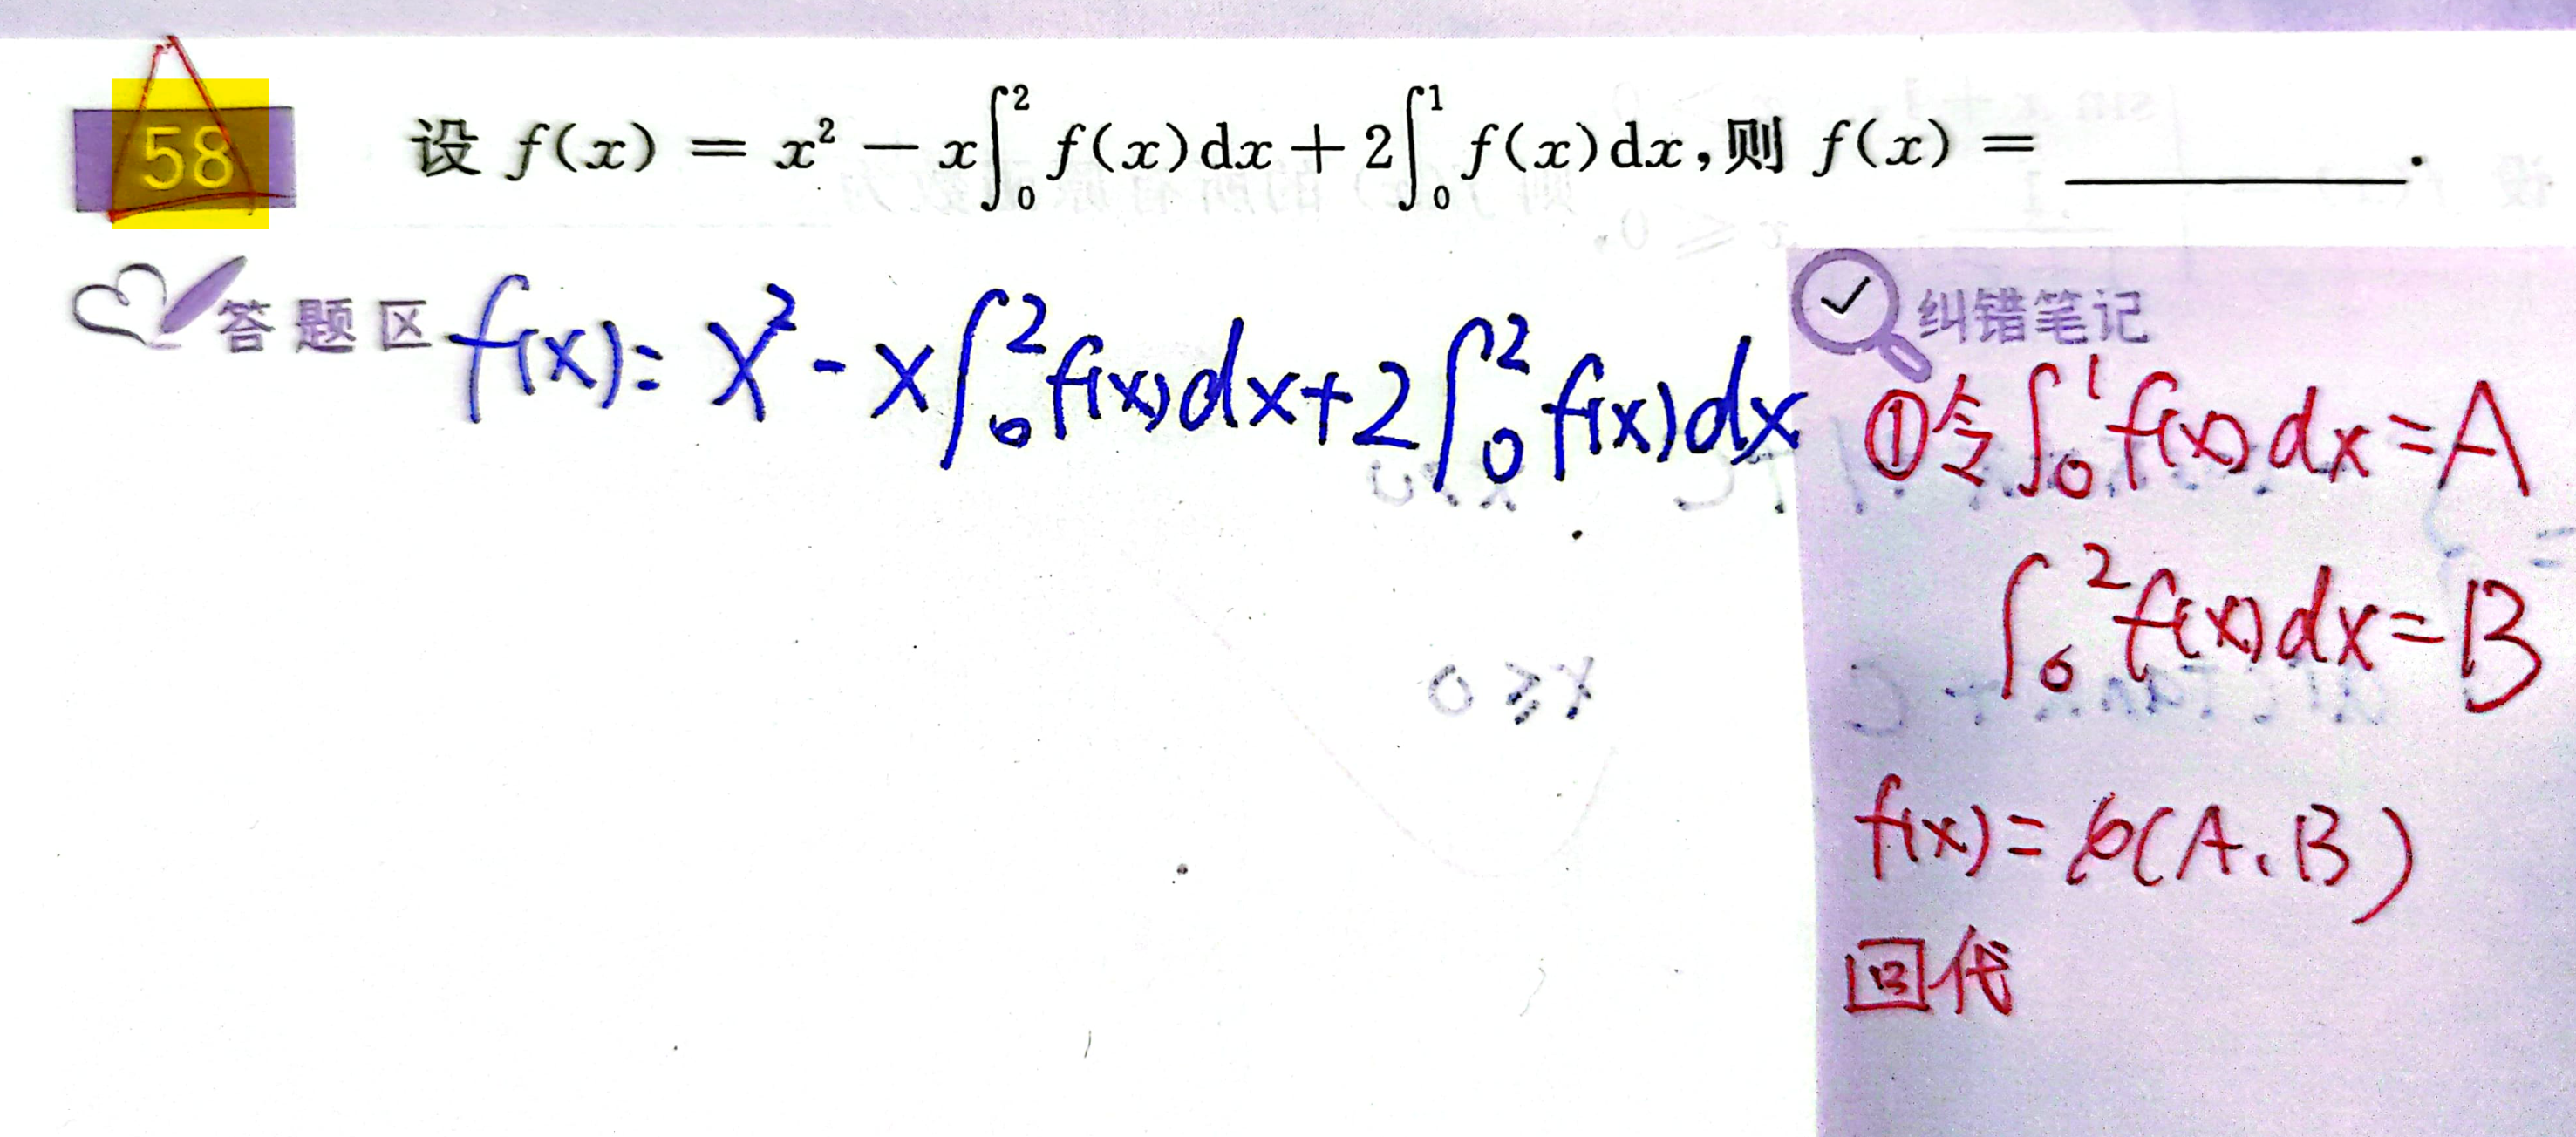 58 设 f(x) = x² − x∫₀² f(x)dx + 2∫₀¹ f(x)dx,则 f(x) = ________.
答题区 f(x) = x² - x∫₀² f(x)dx + 2∫₀² f(x)dx
纠错笔记
①令∫₀¹ f(x)dx = A
∫₀² f(x)dx = B
f(x) = (A、B)
回代